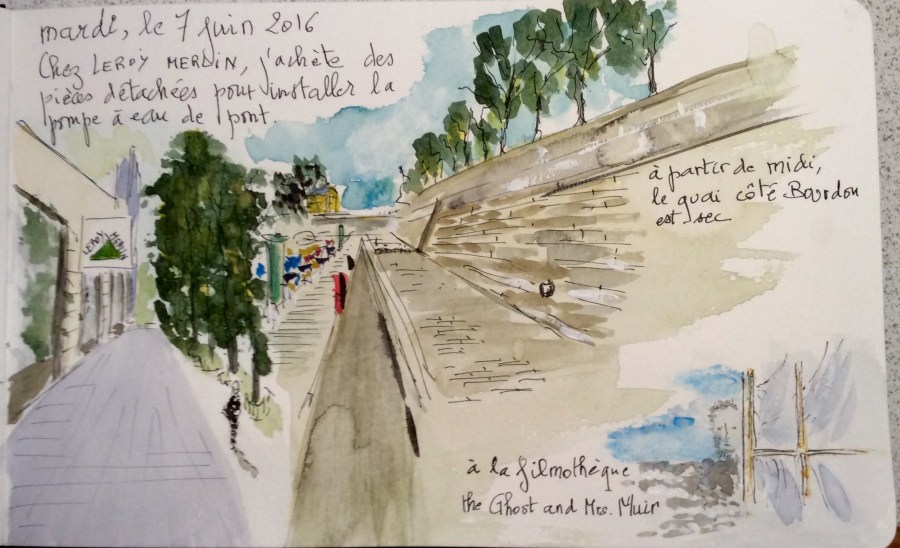 mardi, le 7 juin 2016
Chez LEROY MERLIN, j'achète des
pièces détachées pour installer la
pompe à eau de pont.
LEROY MERLIN
à partir de midi,
le quai côté Bourdon
est sec
à la filmothèque
the Ghost and Mrs. Muir